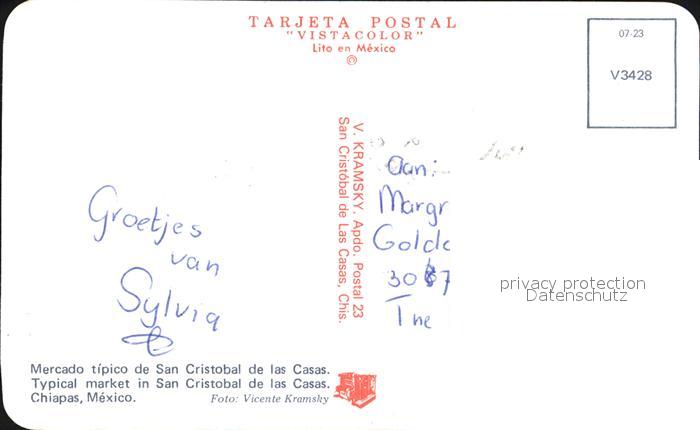 TARJETA POSTAL
"VISTACOLOR"
Lito en México
©
07-23
V3428
V. KRAMSKY. Apdo. Postal 23
San Cristóbal de Las Casas, Chis.
Groetjes
van
Sylvia
Aan:
Margr
Golde
The
privacy protection
Datenschutz
Mercado típico de San Cristobal de las Casas.
Typical market in San Cristobal de las Casas.
Chiapas, México.
Foto: Vicente Kramsky